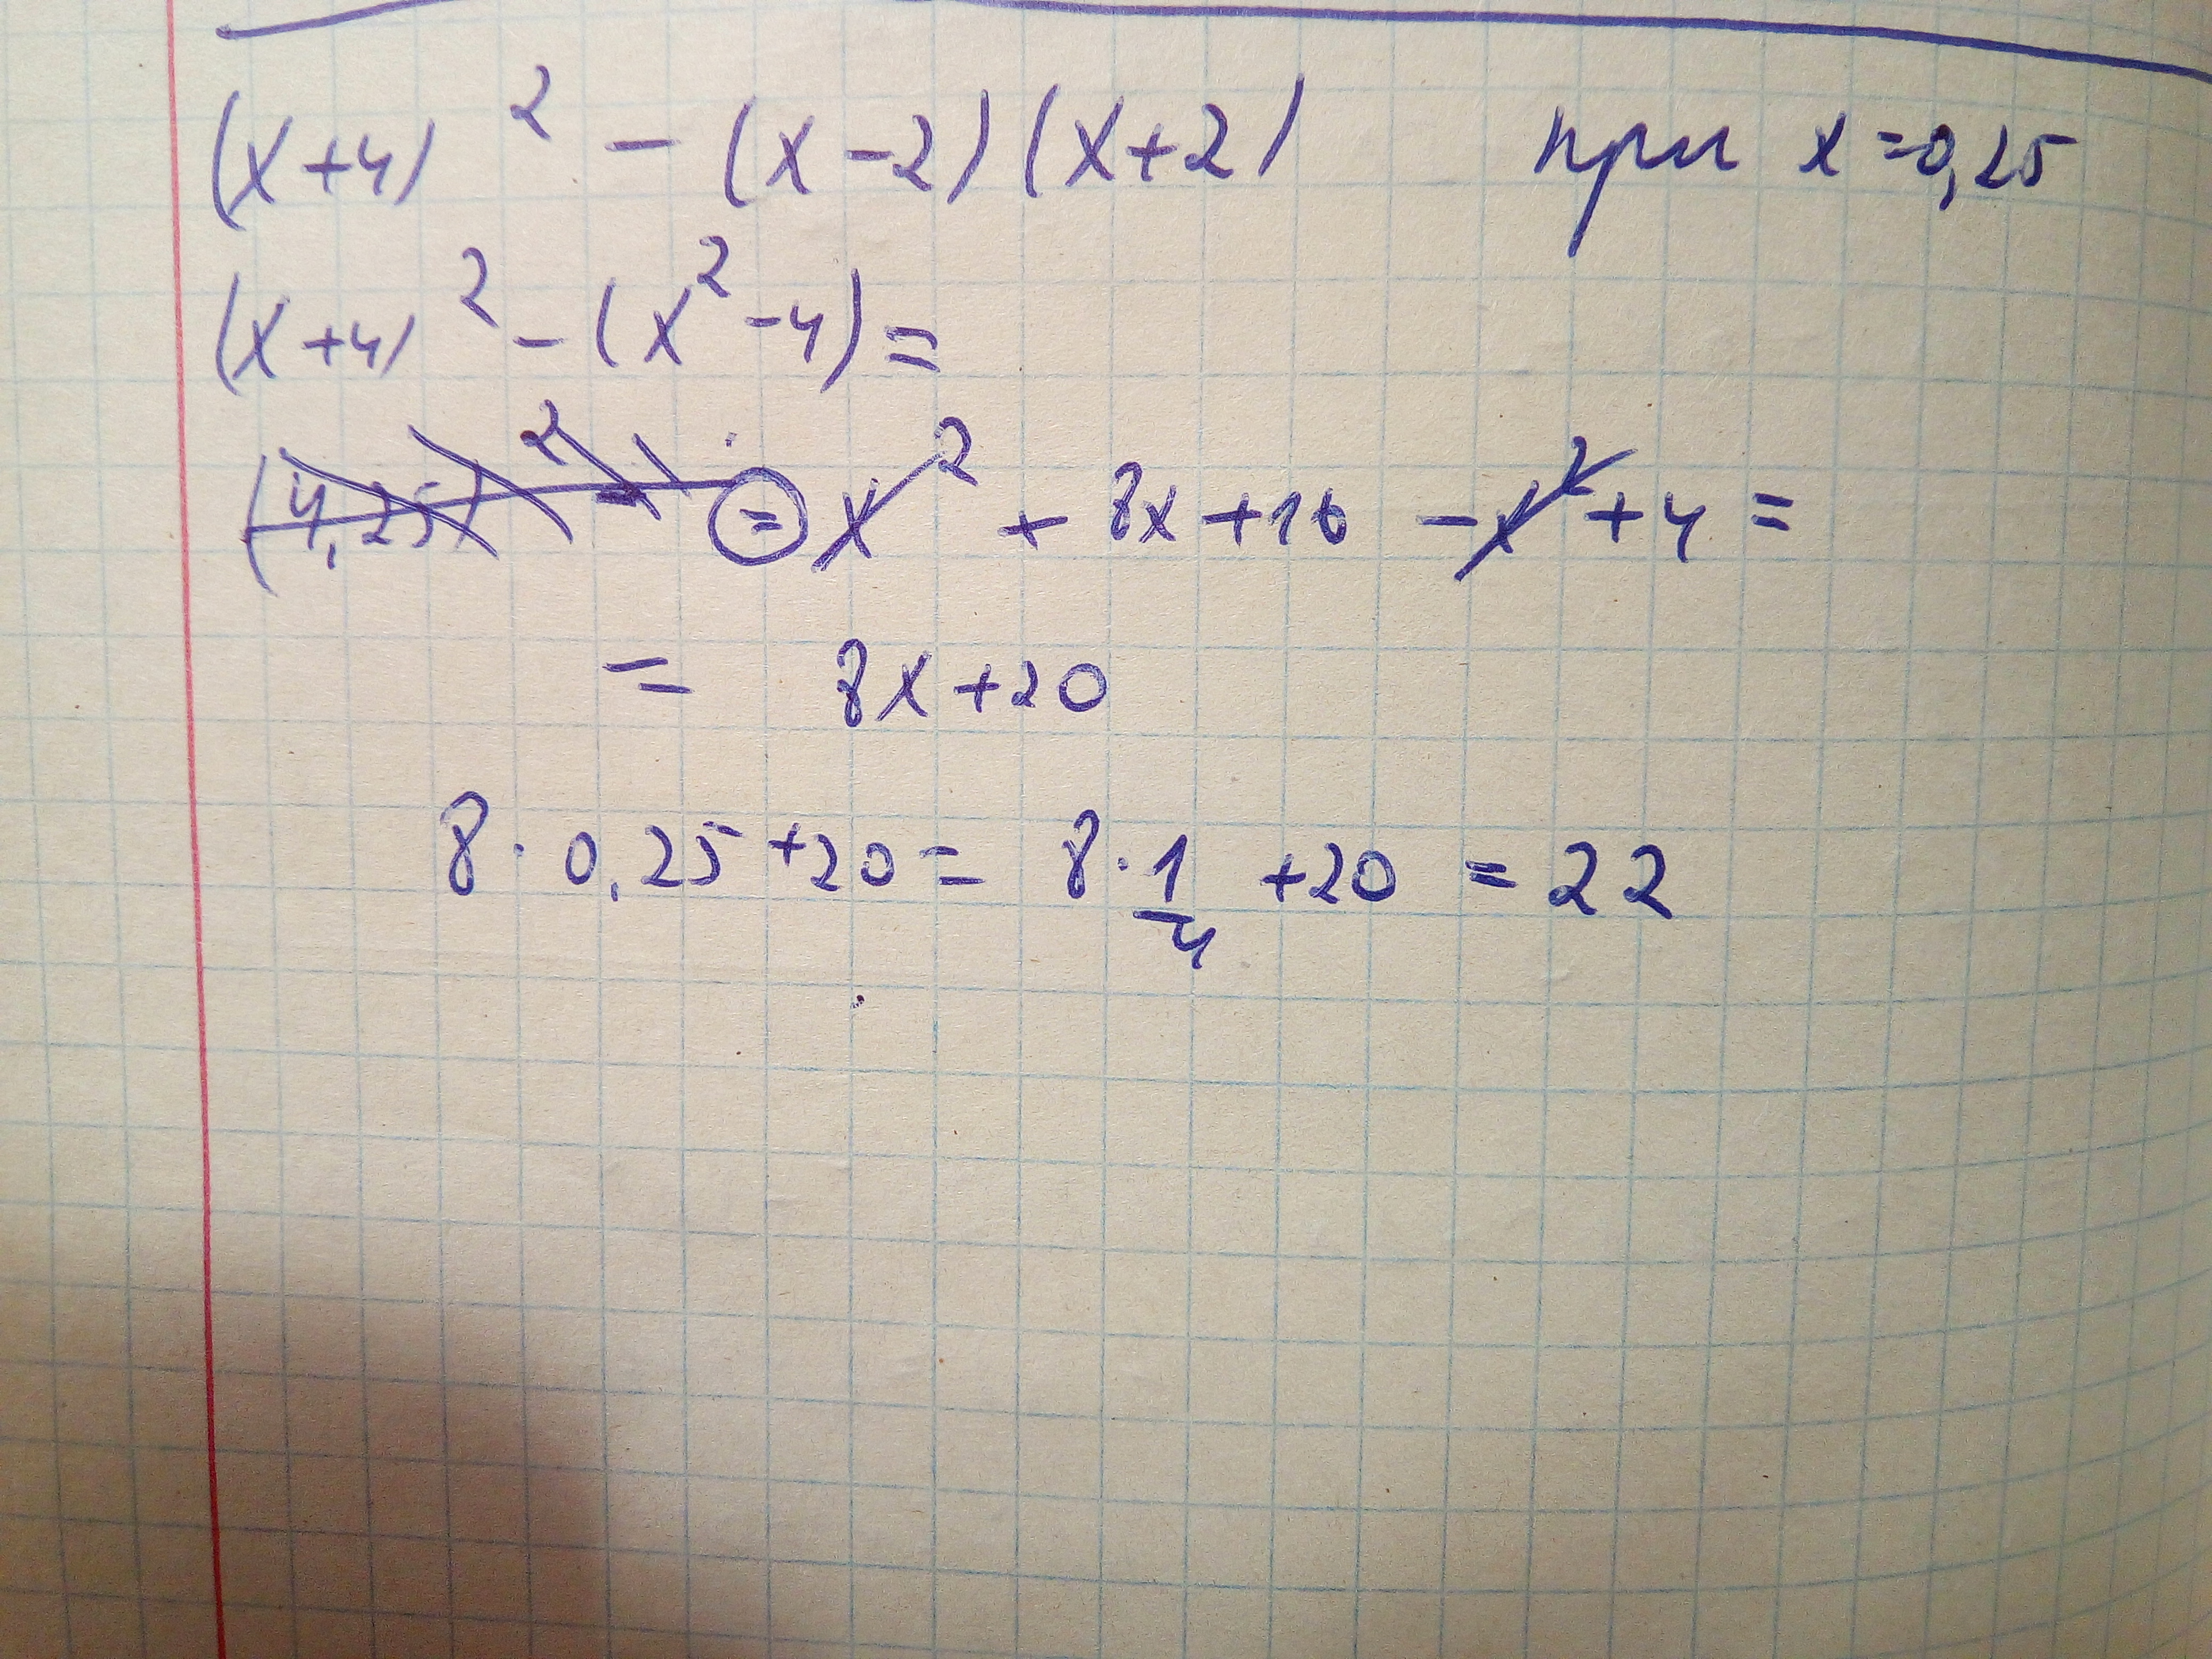 (x+4)² - (x-2)(x+2) при x=0,25
(x+4)² - (x²-4)=
(4,25)² - = x² + 8x+16 - x² + 4 =
= 8x+20
8 · 0,25 + 20 = 8 · 1/4 + 20 = 22